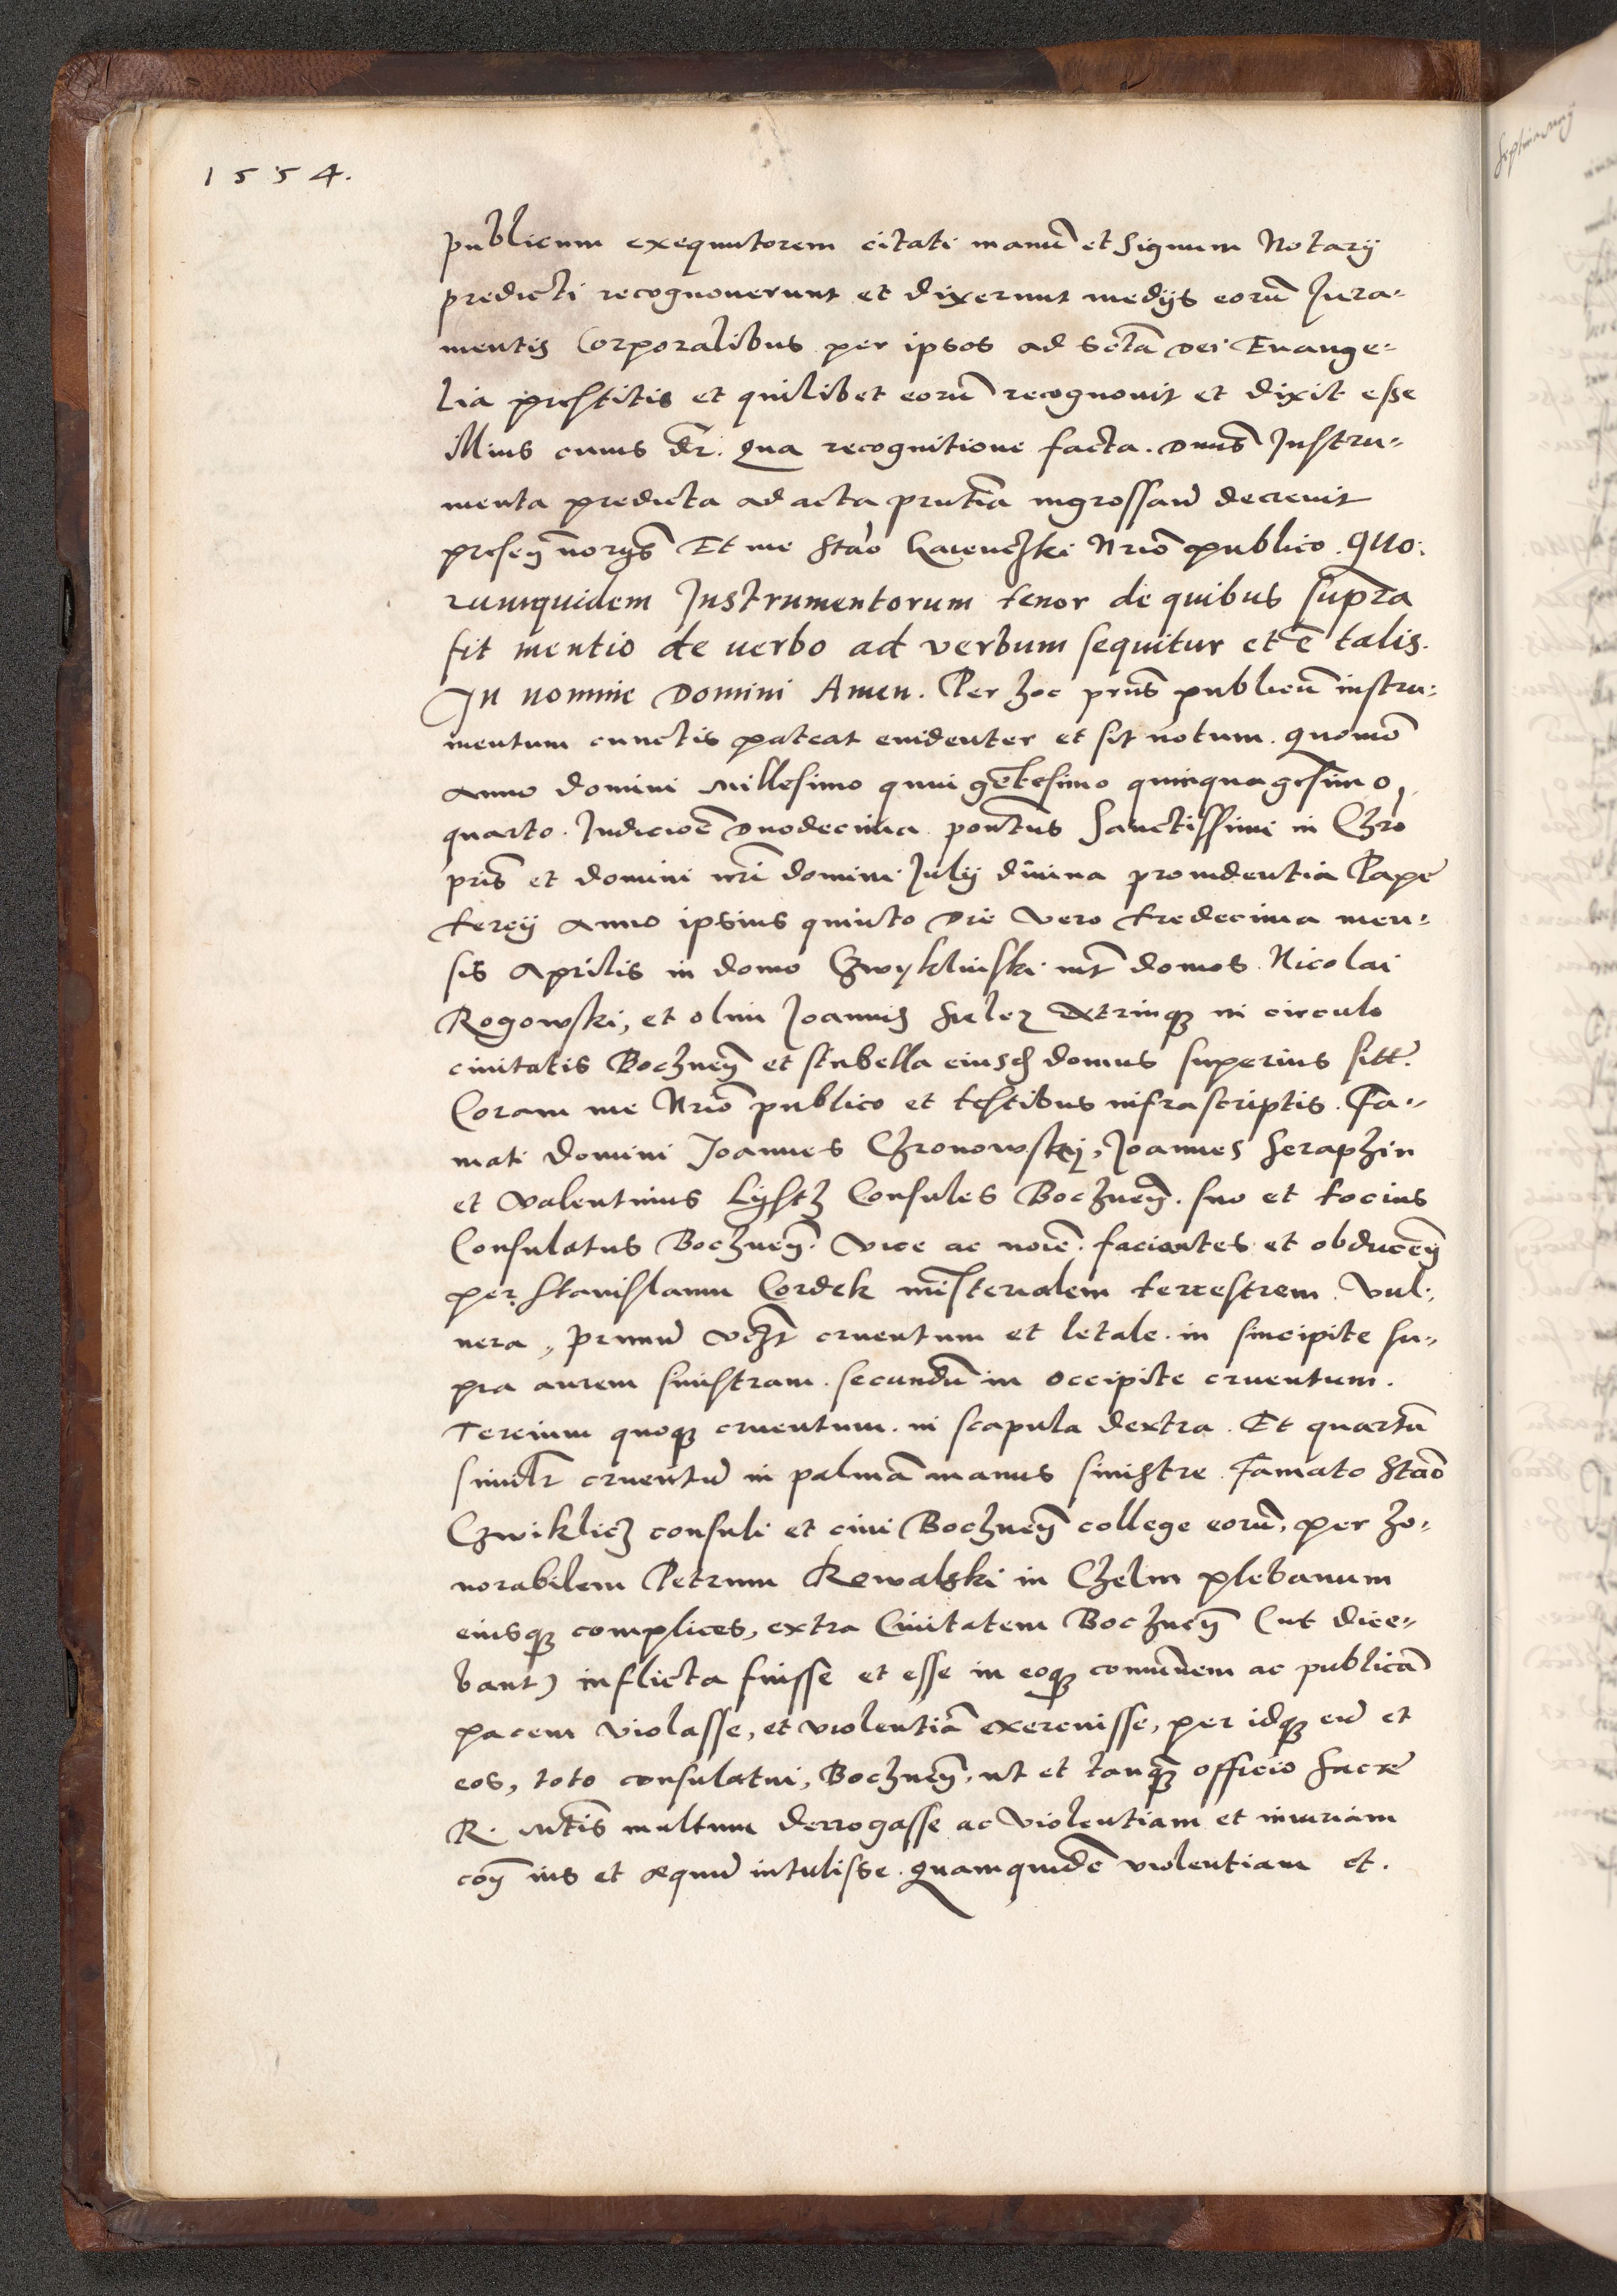 1554.
publicum exequutorem citati manū et signum Notarij
predicti recognouerunt et dixerunt medijs eorū Jura-
mentis Corporalibus per ipsos ad sctā Dei Euange-
lia prestitis et quilibet eorū recognouit et dixit esse
illius cuius dr̄. Qua recognitione facta. Dnūs Instru-
menta predicta ad acta pn̄tia ingrossarī decreuit
presen̄ nor̄ijs Et me Stāo Nriō publico. Quo:
rumquidem Instrumentorum tenor de quibus supra
fit mentio de uerbo ad verbum sequitur et ē talis.
In nomine Domini Amen. Per hoc prn̄s publicū instru-
mentum cunctis pateat euidenter et sit notum. Quomō
Anno domini Millesimo quingētesimo quinquagesimo
quarto. Indicioē duodecima pontūs Sanctissimi in Chrō
pris̄ et domini nr̄i domini Julij diuina prouidentia Pape
tercij anno ipsius quinto Die vero tredecima men-
sis Aprilis in domo Czwyklinski int̄ domos Nicolai
Rogowski, et olim Joannis extrinq3 in circulo
ciuitatis Bochnen̄ et stubella eiusd̄ domus superius sitt̄.
Coram me Nriō publico et testibus infrascriptis. Fa-
mati domini Joannes Chronowskij, Joannes Seraphin
et Valentinus Lysth Consules Bochnen̄. suo et tocius
Consulatus Bochnen̄. vice ac noiē. facientes et obducen̄
per Stanislaum Cordek mīsterialem terrestrem. Vul-
nera, primū vcz̄t cruentum et letale. in sincipite su-
pra aurem sinistram. secundū in occipite cruentum.
Tercium quoq3 cruentum. in scapula dextra. Et quartū
similr̄ cruentū in palmā manus sinistre. Famato Stāo
Czwiklicz consuli et ciui Bochnen̄ college eorū, per ho-
norabilem Petrum Kowalski in Chelm plebanum
eiusq3 complices, extra Ciuitatem Bochnen̄ (ut dice-
bant) inflicta fuisse et esse in eoq3 comunem ac publicā
pacem violasse, et violentiā exercuisse, per idq3 eū et
eos, toto consulatui, Bochnen̄, ut et tanq̄3 officio Sacre
R. Mtīs multum derrogasse ac violentiam et iniuriam
con̄ ius et æquū intulisse. Quamquidē violentiam et.